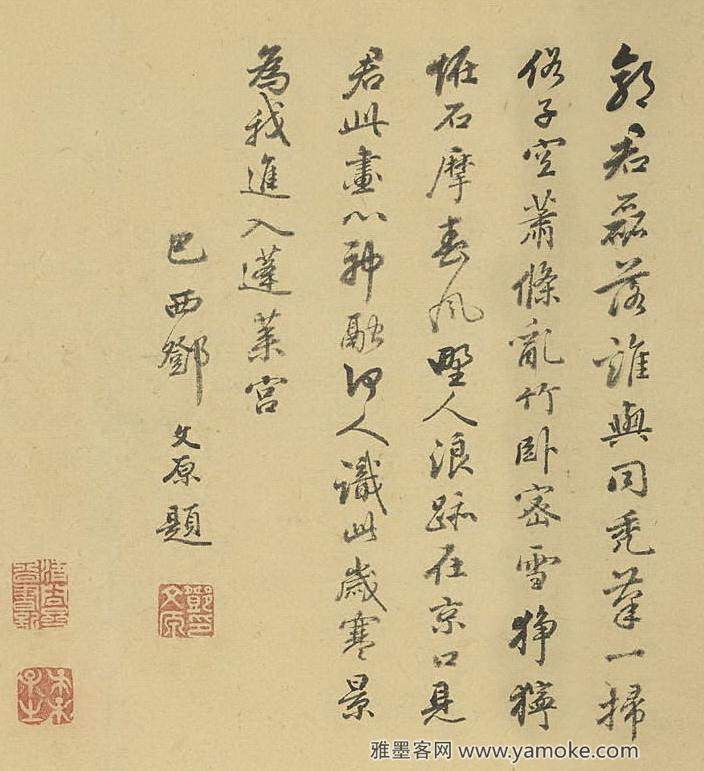 郭君磊落誰與同禿筆一掃
俗子空蕭條亂竹臥密雪猙獰
恠石摩春風野人浪跡在京口見
君此畫心神融何人識此歲寒景
為我進入蓬萊宮
巴西鄧文原題
鄧文原印
雅墨客网 www.yamoke.com